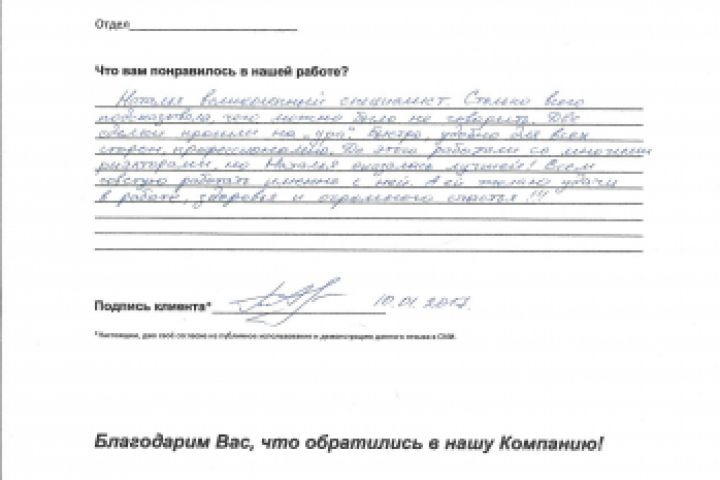 Отдел
Что вам понравилось в нашей работе?
Наталья великолепный специалист. Столько всего
подсказывала, чего можно было не говорить. Две
сделки прошли на "ура". Быстро, удобно для всех
сторон, профессионально. До этого работали со многими
риэлторами, но Наталья оказалась лучшей! Всем
советую работать именно с ней. А ей желаю удачи
в работе, здоровья и огромного счастья !!!
Подпись клиента* 10.01.2017.
*Настоящим, даю своё согласие на публичное использование и демонстрацию данного отзыва в СМИ.
Благодарим Вас, что обратились в нашу Компанию!